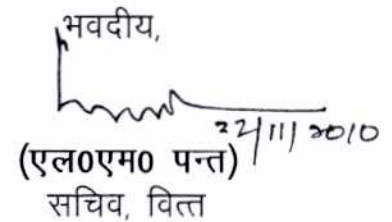 भवदीय,
22/11/2010
(एल0एम0 पन्त)
सचिव, वित्त